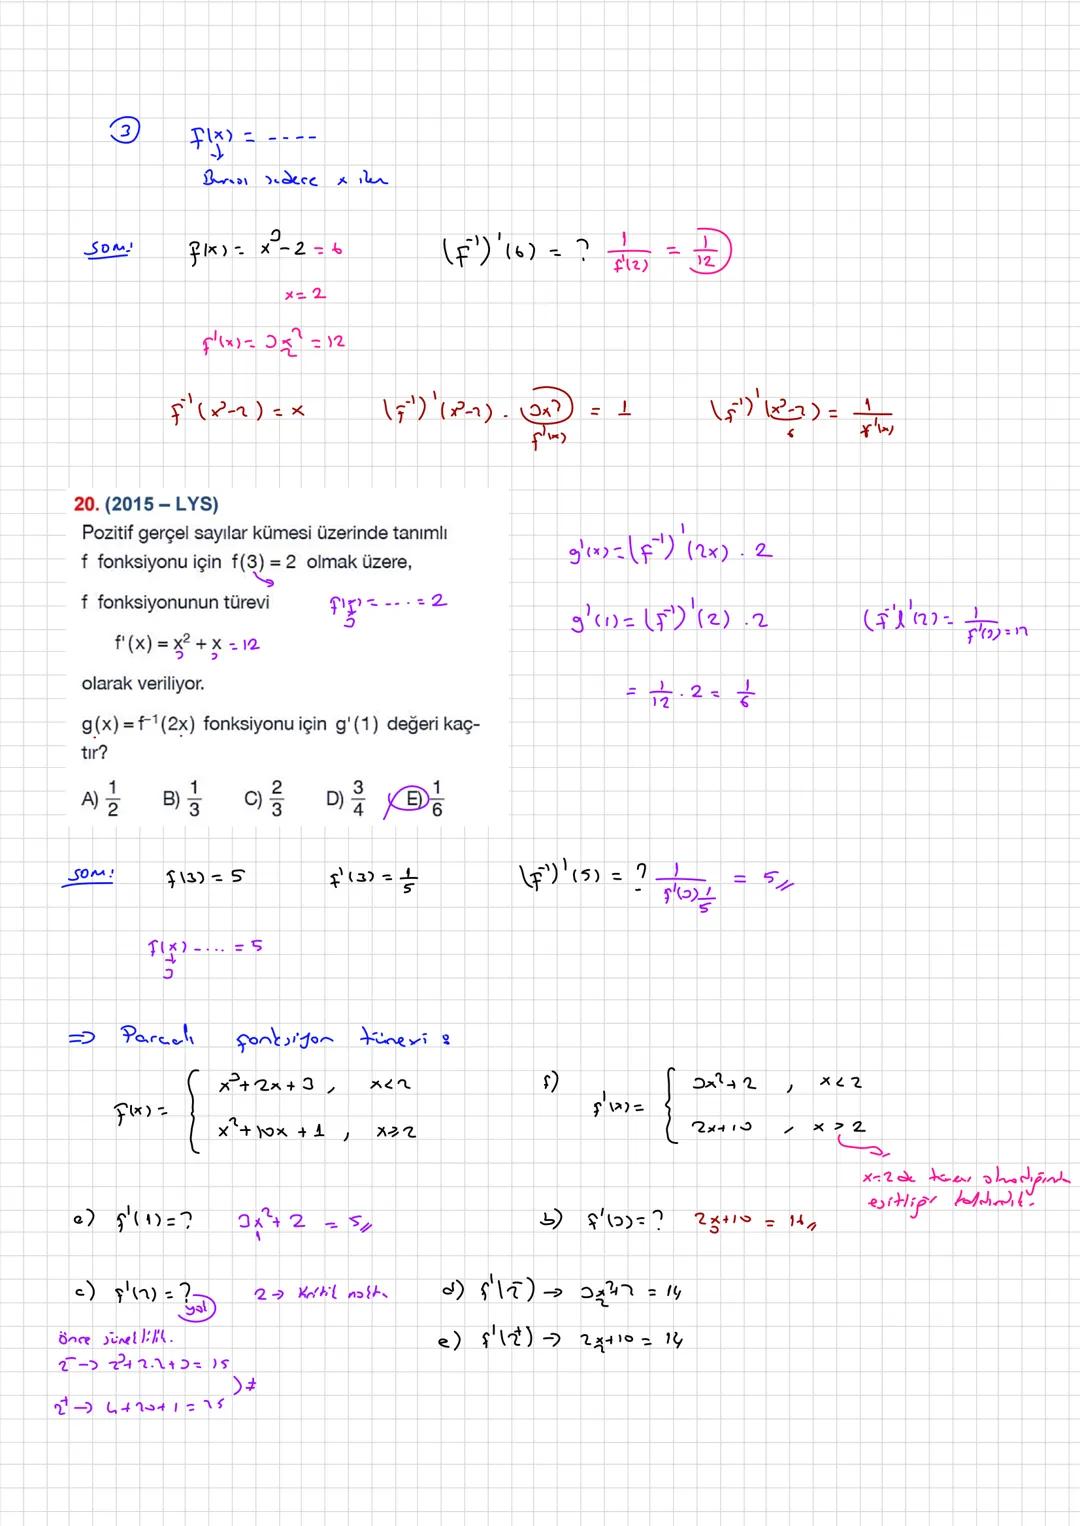 ③ f(x) = ----
↓
Burası sadece x iken
SORU: f(x) = x³-2 = 6 (f⁻¹)'(6) = ? 1/f'(2) = 1/12
x = 2
f'(x) = 3x² = 12
2
f⁻¹(x³-2) = x (f⁻¹)'(x³-2) . (3x²) = 1 (f⁻¹)'(x³-2) = 1/f'(x)
f'(x) 6
20. (2015 – LYS)
Pozitif gerçel sayılar kümesi üzerinde tanımlı
f fonksiyonu için f(3) = 2 olmak üzere,
f fonksiyonunun türevi f(x) = ---- = 2
3
f'(x) = x² + x = 12
3 3
olarak veriliyor.
g(x) = f⁻¹(2x) fonksiyonu için g'(1) değeri kaç-
tır?
A) 1/2 B) 1/3 C) 2/3 D) 3/4 E) 1/6
g'(x) = (f⁻¹)'(2x) . 2
g'(1) = (f⁻¹)'(2) . 2 (f⁻¹)'(2) = 1/f'(3) = 12
= 1/12 . 2 = 1/6
SORU: f(3) = 5 f'(3) = 1/5 (f⁻¹)'(5) = ? 1/f'(3) 1/5 = 5//
f(x) -.... = 5
↓
3
⇒ Parçalı fonksiyon türevi :
f(x) = { x³+2x+3 , x<2
x²+10x+1 , x≥2
f) f'(x) = { 3x²+2 , x<2
2x+10 , x>2
x=2 de türev olmadığından
eşitliği kaldırdık.
a) f'(1) = ? 3x²+2 = 5//
1
b) f'(3) = ? 2x+10 = 16//
3
c) f'(2) = ? yok 2 → Kritik nokta
önce süreklilik.
2⁻ → 2³+2.2+3 = 15
2⁺ → 4+20+1 = 25 ) ≠
d) f'(2⁻) → 3x²+2 = 14
2
e) f'(2⁺) → 2x+10 = 14
2